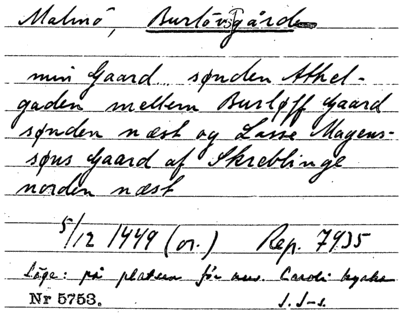 Malmö, Burlövsgård
min Gaard sønden Athel-
gaden mellem Burløff Gaard
sønden næst og Lasse Magens-
søns Gaard af Skreblinge
norden næst
5/12 1449 (or.) Rep. 7935
Läge: på platsen för nuv. Caroli kyrka
Nr 5753.